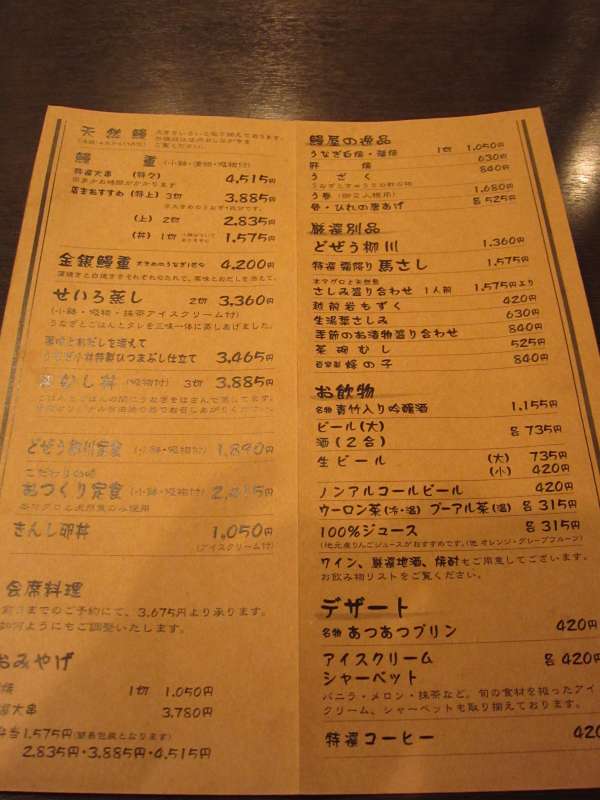 天然鰻
鰻 重 (小鉢・漬物・吸物付)
特選大串 (特々) 4,515円
店主おすすめ (特上) 3切 3,885円
(上) 2切 2,835円
(丼) 1切 1,575円
金銀鰻重 4,200円
せいろ蒸し 2切 3,360円
(小鉢・吸物・抹茶アイスクリーム付)
うなぎとごはんとタレを三味一体に蒸しあげました。
薬味とお だしを添えて
うなぎ小林特製ひつまぶし仕立て 3,465円
むし丼 (吸物付) 3切 3,885円
どぜう柳川定食 (小鉢・吸物付) 1,890円
おつくり定食 (小鉢・吸物付) 2,415円
きんし卵丼 1,050円
(アイスクリーム付)
会席料理
前日までのご予約にて、3,675円より承ります。
如何ようにもご調整いたします。
おみやげ
1切 1,050円
大串 3,780円
弁当 1,575円
2,835円・3,885円・4,515円
鰻屋の逸品
うなぎ白焼・蒲焼 1切 1,050円
肝焼 630円
うざく 840円
う巻 1,680円
骨・ひれの唐あげ 各 525円
厳選別品
どぜう柳川 1,360円
特選霜降り 馬さし 1,575円
さしみ盛り合わせ 1人前 1,575円より
越前岩もずく 420円
生湯葉さしみ 630円
季節のお漬物盛り合わせ 840円
茶碗むし 525円
自家製 蜂の子 840円
お飲物
名物 青竹入り吟醸酒 1,155円
ビール(大)
酒(2合) 各 735円
生ビール (大) 735円
(小) 420円
ノンアルコールビール 420円
ウーロン茶(冷・温) プーアル茶(温) 各 315円
100%ジュース 各 315円
(地元産りんごジュースがおすすめです。(他 オレンジ・グレープフルーツ)
ワイン、厳選地酒、焼酎もご用意してございます。
お飲み物リストをご覧ください。
デザート
名物 あつあつプリン 420円
アイスクリーム
シャーベット 各 420円
バニラ・メロン・抹茶など。旬の食材を使ったアイ
スクリーム、シャーベットも取り揃えております。
特選コーヒー 420